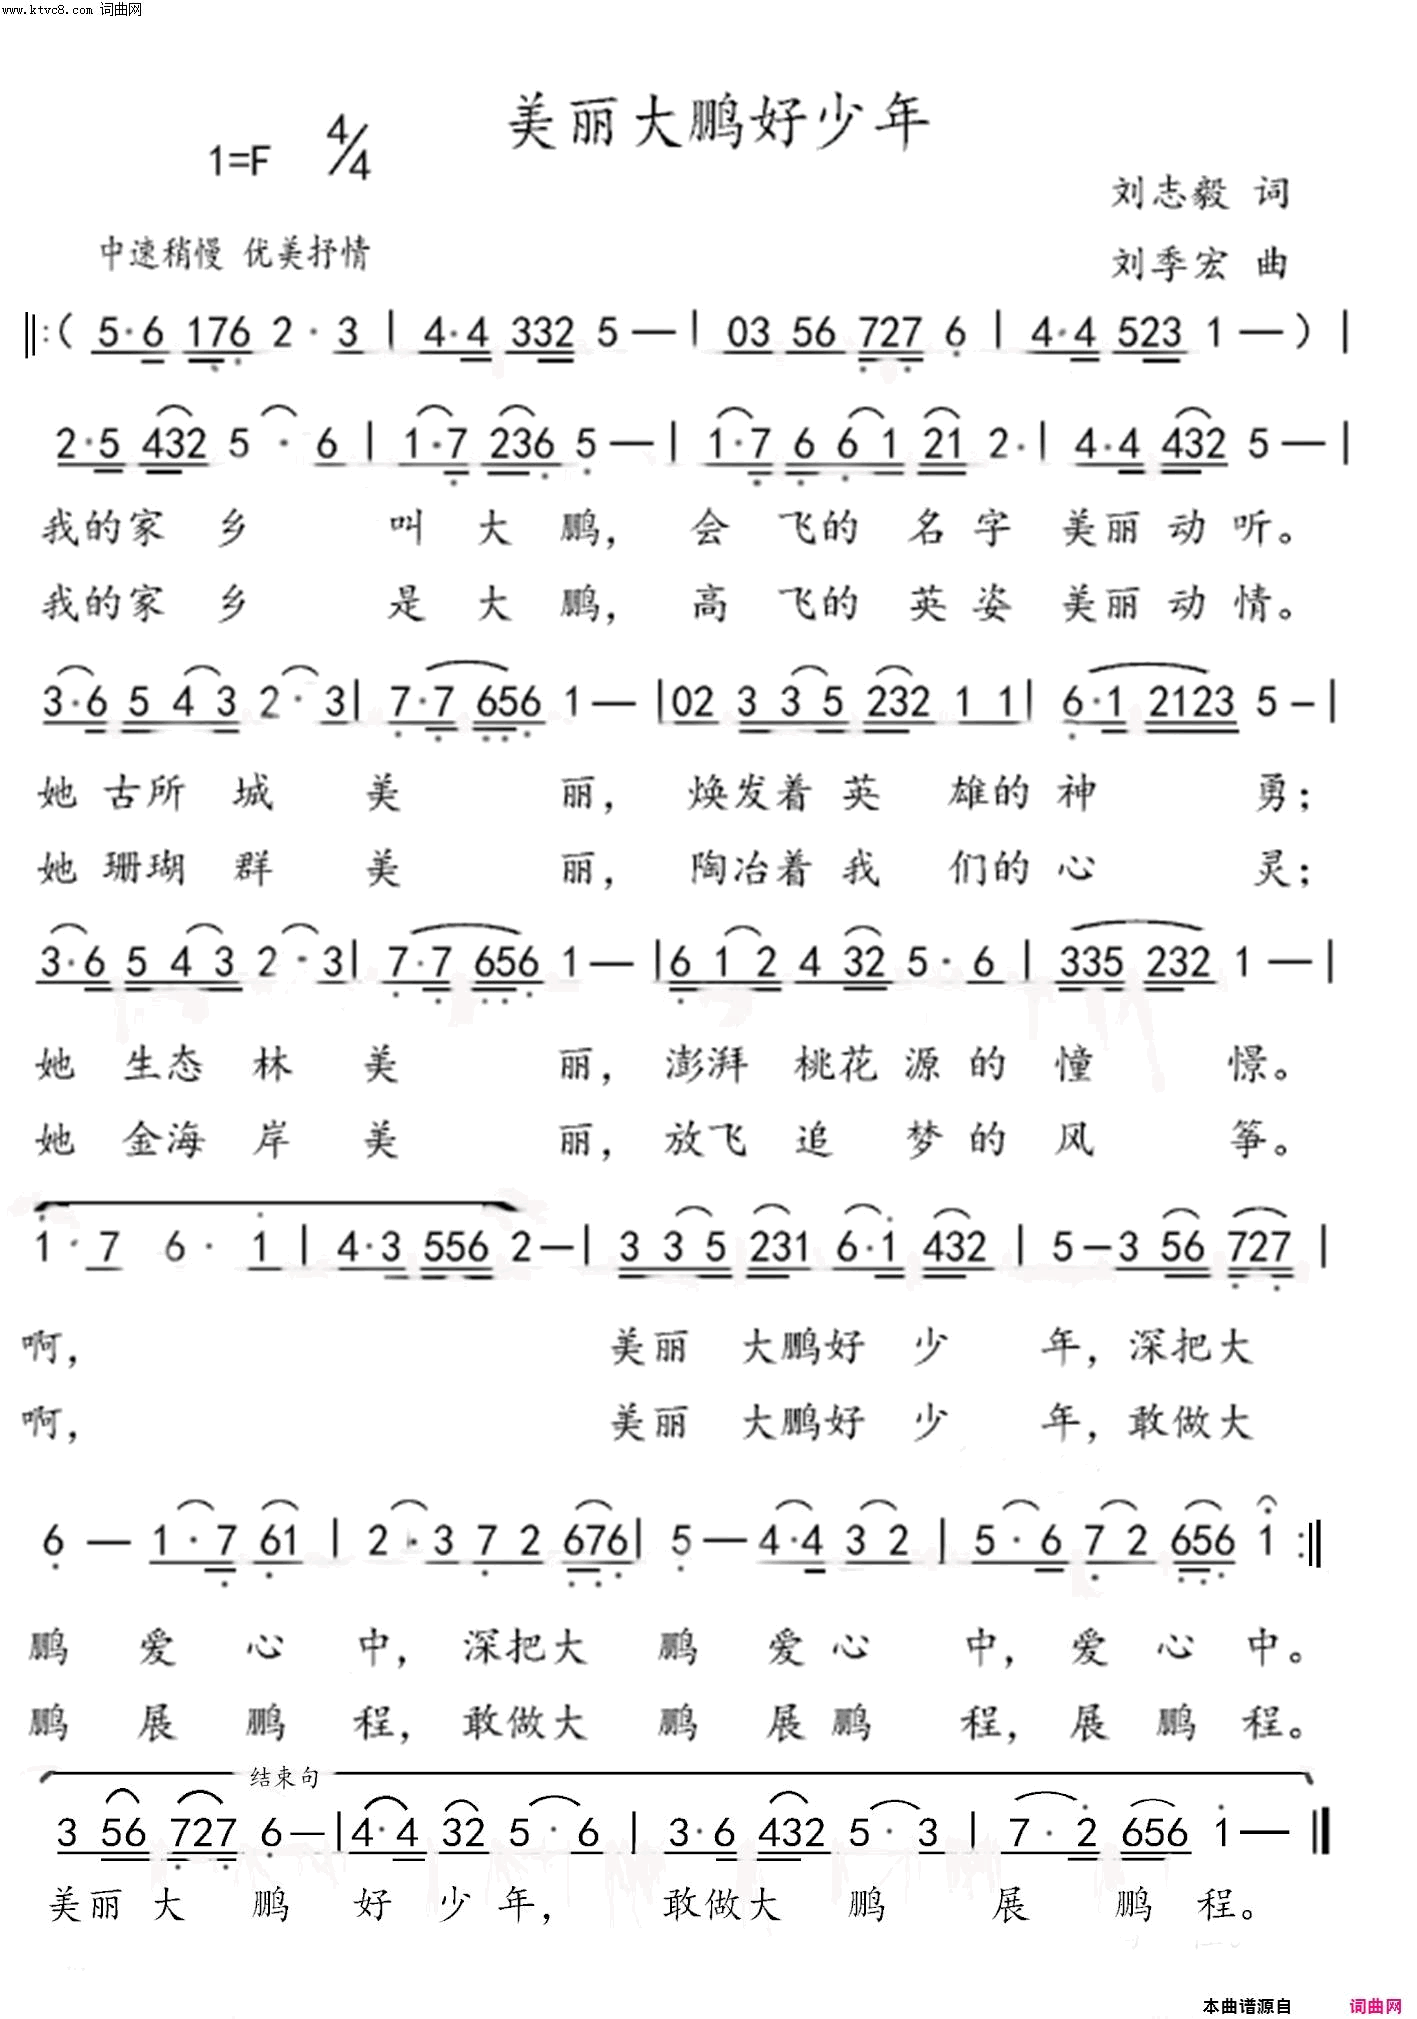 www.ktvc8.com 词曲网
美丽大鹏好少年
1=F 4/4
刘志毅 词
中速稍慢 优美抒情
刘季宏 曲
‖:( 5·6 176 2·3 | 4·4 332 5— | 03 56 727 6 | 4·4 523 1—) |
2·5 432 5·6 | 1·7 236 5— | 1·7 6 6 1 21 2· | 4·4 432 5— |
我的家乡 叫大鹏, 会飞的名字美丽动听。
我的家乡 是大鹏, 高飞的英姿美丽动情。
3·6 5 4 3 2·3 | 7·7 656 1— | 02 3 3 5 232 1 1 | 6·1 2123 5— |
她古所城美丽, 焕发着英雄的神勇;
她珊瑚群美丽, 陶冶着我们的心灵;
3·6 5 4 3 2·3 | 7·7 656 1— | 6 1 2 4 32 5·6 | 335 232 1— |
她生态林美丽, 澎湃桃花源的憧憬。
她金海岸美丽, 放飞追梦的风筝。
1·7 6·1 | 4·3 556 2— | 3 3 5 231 6·1 432 | 5—3 56 727 |
啊, 美丽大鹏好少年, 深把大
啊, 美丽大鹏好少年, 敢做大
6— 1·7 61 | 2·3 7 2 676 | 5— 4·4 3 2 | 5·6 7 2 656 1 :‖
鹏爱心中, 深把大鹏爱心中, 爱心中。
鹏展鹏程, 敢做大鹏展鹏程, 展鹏程。
结束句
3 56 727 6— | 4·4 32 5·6 | 3·6 432 5·3 | 7·2 656 1— ‖
美丽大鹏好少年, 敢做大鹏展鹏程。
本曲谱源自 词曲网